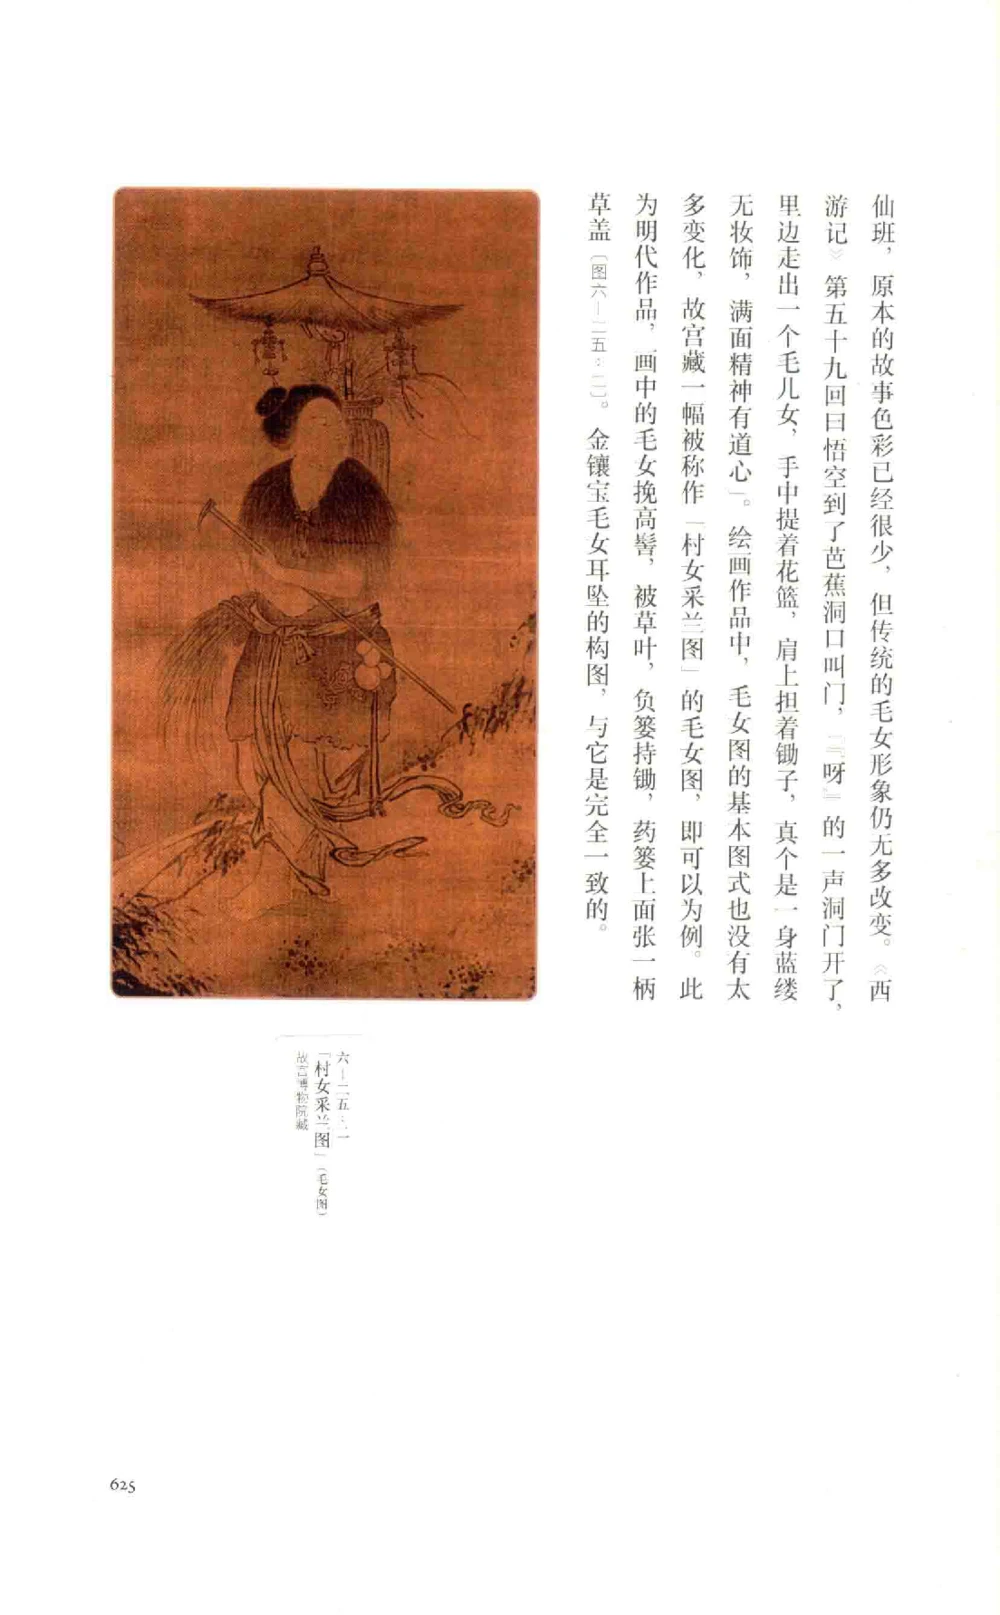 仙班，原本的故事色彩已经很少，但传统的毛女形象仍无多改变。《西
游记》第五十九回曰悟空到了芭蕉洞口叫门，「『呀』的一声洞门开了，
里边走出一个毛儿女，手中提着花篮，肩上担着锄子，真个是一身蓝缕
无妆饰，满面精神有道心」。绘画作品中，毛女图的基本图式也没有太
多变化，故宫藏一幅被称作「村女采兰图」的毛女图，即可以为例。此
为明代作品，画中的毛女挽高髻，被草叶，负篓持锄，药篓上面张一柄
草盖〔图六－二五：二〕。金镶宝毛女耳坠的构图，与它是完全一致的。
六－二五：一
「村女采兰图」（毛女图）
故宫博物院藏
625